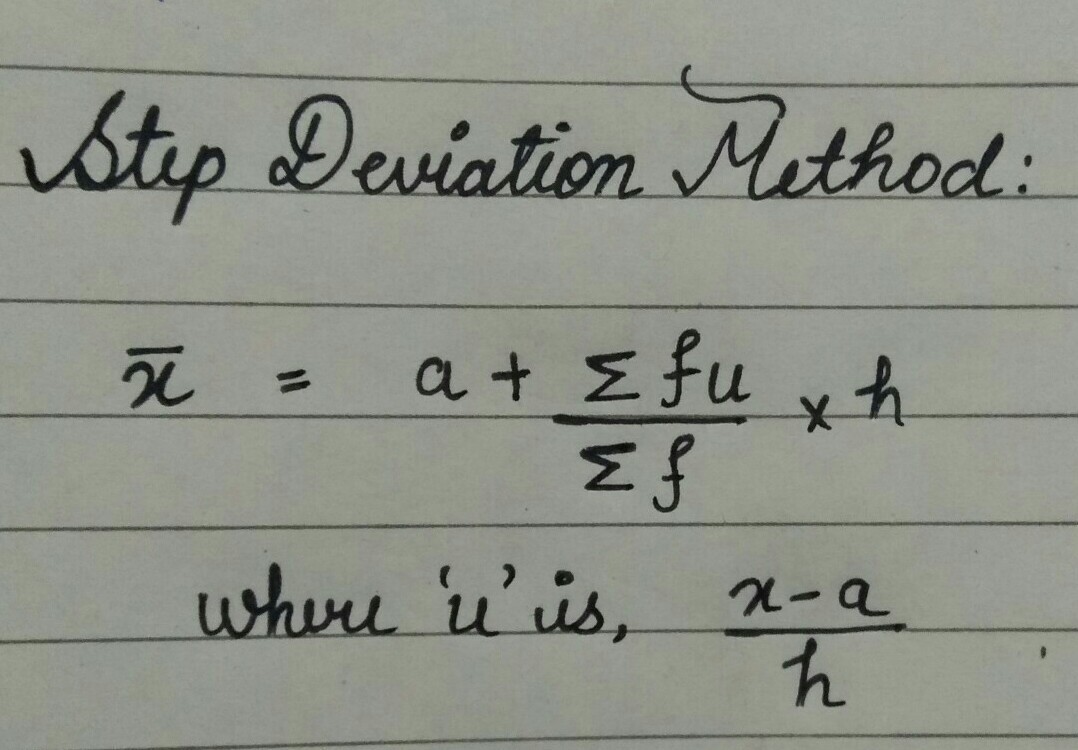 Step Deviation Method:
x̄ = a + Σfu/Σf × h
where 'u' is, x-a/h